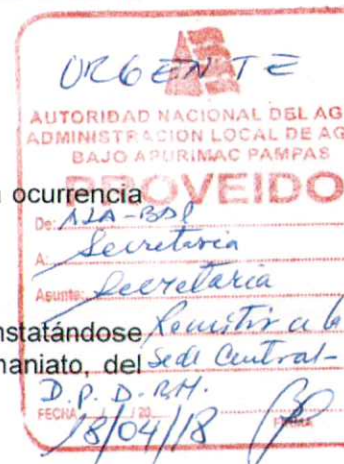 URGENTE
AUTORIDAD NACIONAL DEL AG
ADMINISTRACION LOCAL DE AG
BAJO APURIMAC PAMPAS
PROVEIDO
ocurrencia
De: ALA-BAP
A: Secretaria
Asunto: Secretaria
nstatándose Remitir a la
maniato, del Sede Central-
D.P.D.RH.
FECHA / / 20
18/04/18
FIRMA